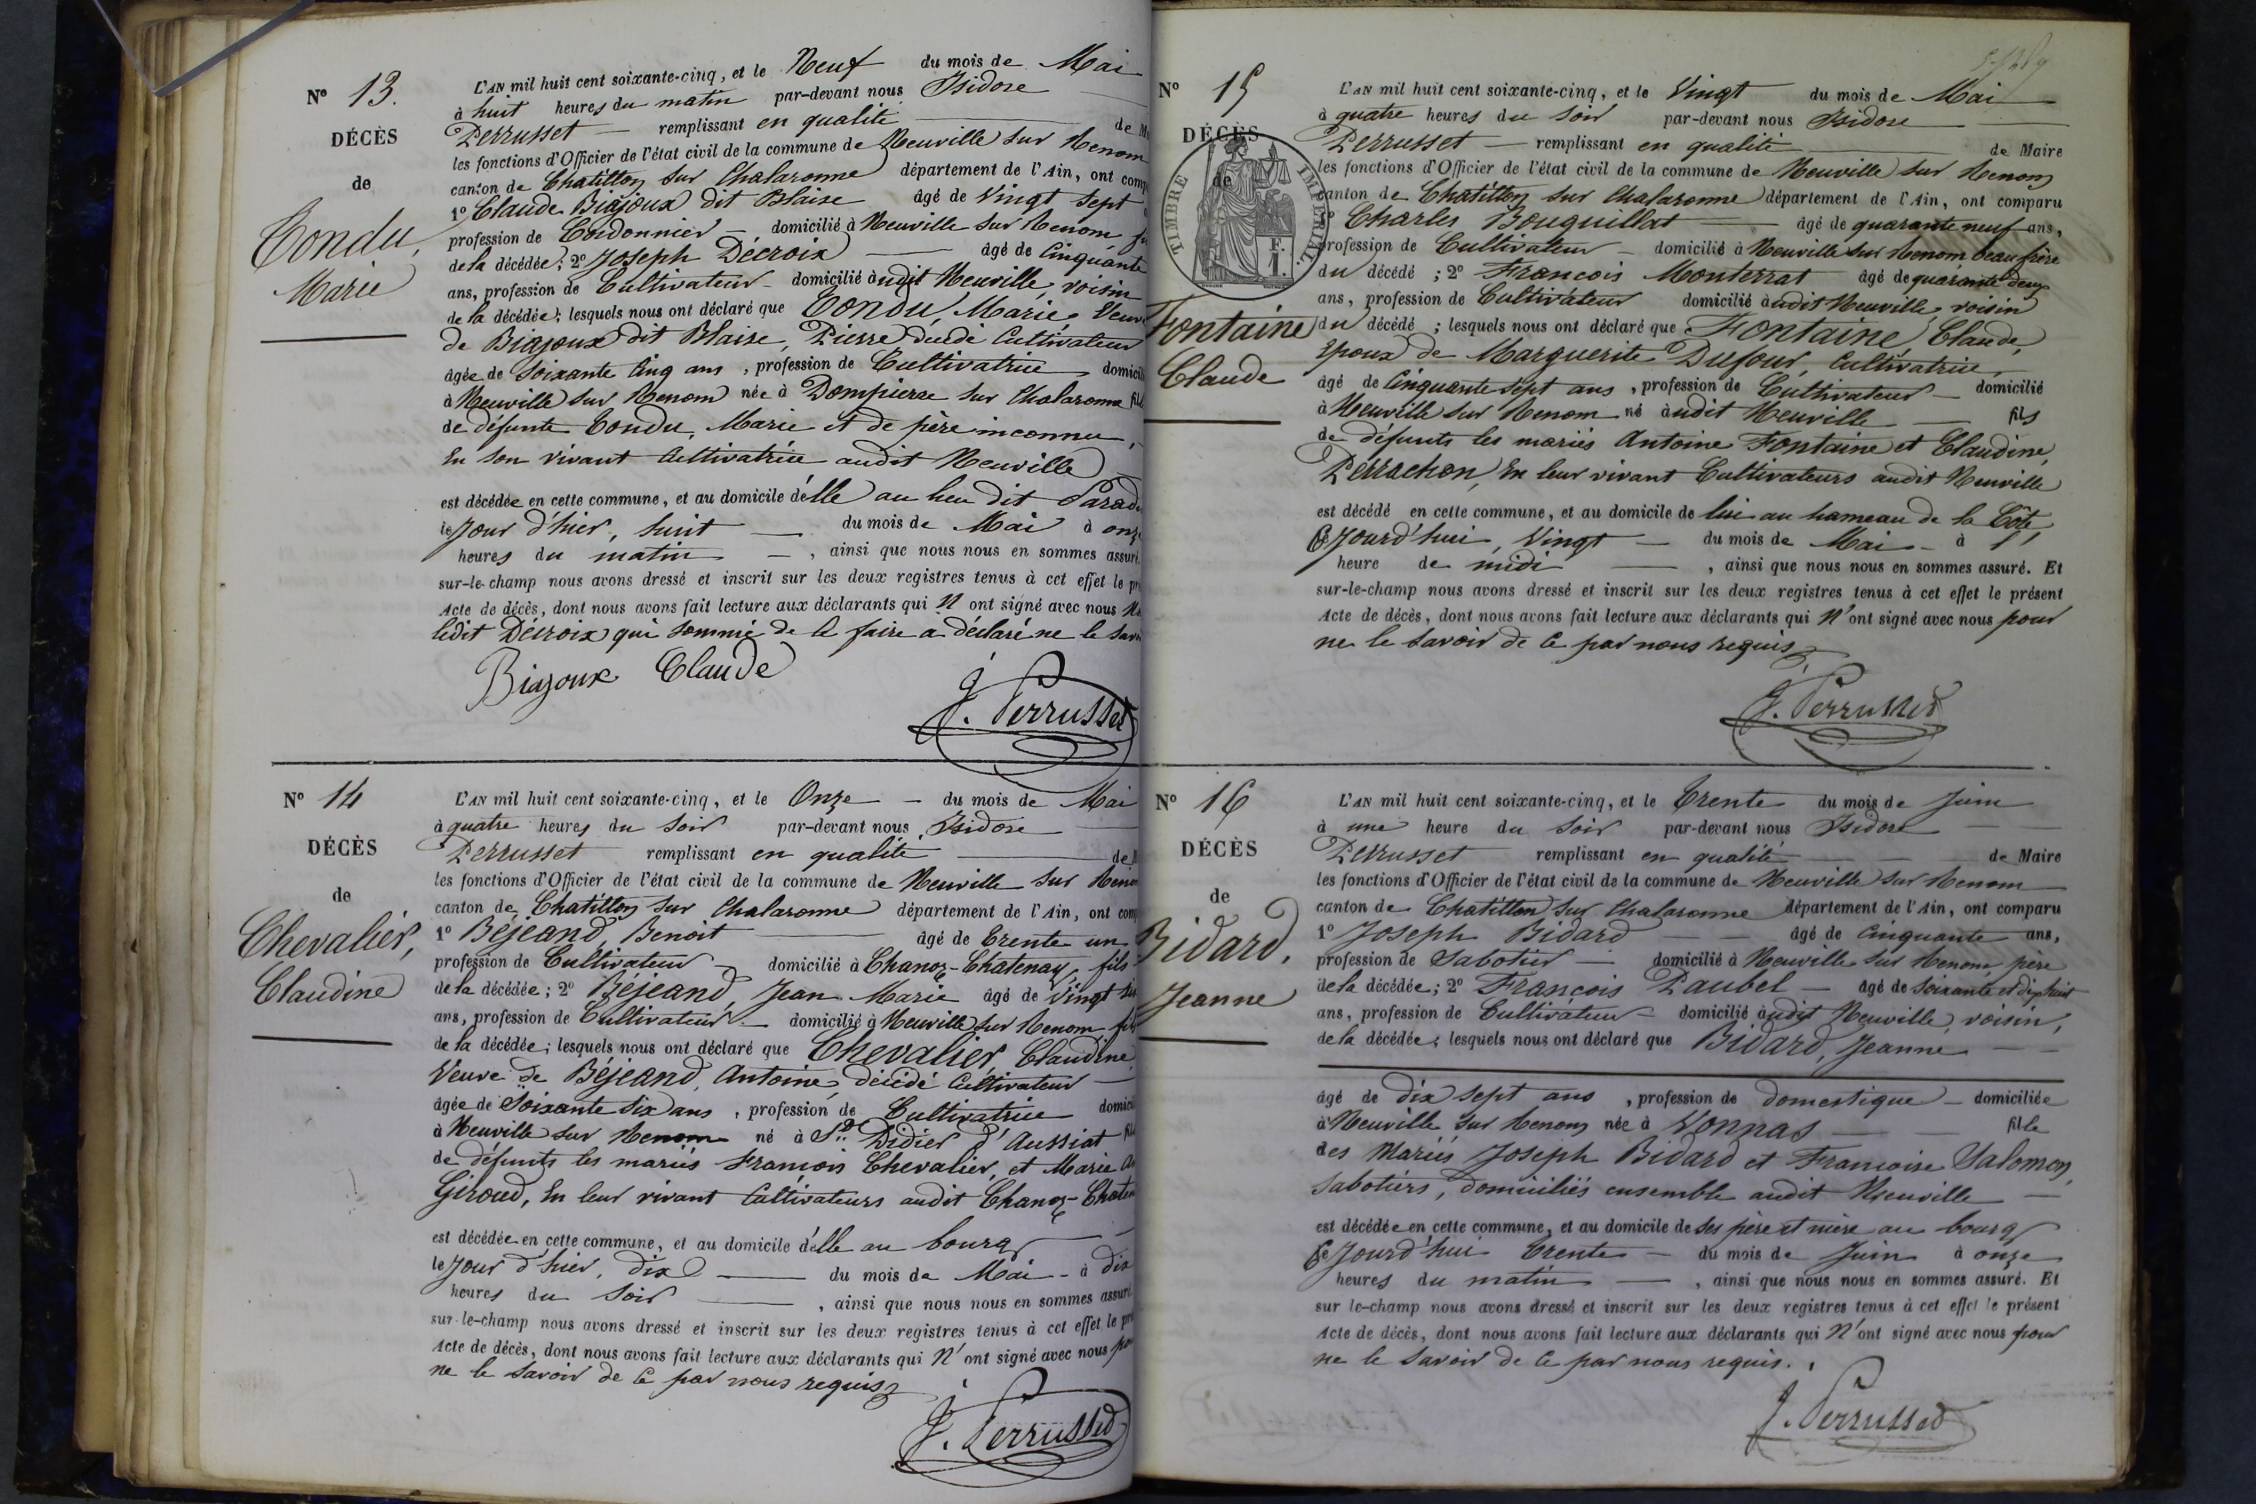 N° 13.
DÉCÈS
de
Condu,
Marie
L'AN mil huit cent soixante-cinq, et le Neuf du mois de Mai
à huit heures du matin par-devant nous Isidore
Perrusset remplissant en qualité de
les fonctions d'Officier de l'état civil de la commune de Neuville sur Renom
canton de Chatillon sur Chalaronne département de l'Ain, ont
1° Claude Biajoux dit Blaise âgé de Vingt sept
profession de Cordonnier domicilié à Neuville sur Renom
de la décédée; 2° Joseph Décroix âgé de Cinquante
ans, profession de Cultivateur domicilié audit Neuville, voisin
de la décédée; lesquels nous ont déclaré que Condu, Marie, Veuve
de Biajoux dit Blaise, Pierre Cultivateur
âgée de Soixante Cinq ans, profession de Cultivatrice
à Neuville sur Renom née à Dompierre sur Chalaronne
de défunte Condu, Marie et de père inconnu,
En son vivant Cultivatrice audit Neuville
est décédée en cette commune, et au domicile d'elle au lieu dit
le Jour d'hier, huit du mois de Mai à
heures du matin, ainsi que nous nous en sommes assuré.
sur-le-champ nous avons dressé et inscrit sur les deux registres tenus à cet effet le
Acte de décès, dont nous avons fait lecture aux déclarants qui N ont signé avec nous
ledit Décroix qui sommé de le faire a déclaré ne le
Biajoux Claude
J. Perrusset
N° 14
DÉCÈS
de
Chevalier,
Claudine
L'AN mil huit cent soixante-cinq, et le Onze du mois de Mai
à quatre heures du Soir par-devant nous Isidore
Perrusset remplissant en qualité de
les fonctions d'Officier de l'état civil de la commune de Neuville sur
canton de Chatillon sur Chalaronne département de l'Ain, ont
1° Béjeand, Benoit âgé de Trente un
profession de Cultivateur domicilié à Chanoz-Chatenay, fils
de la décédée; 2° Béjeand, Jean Marie âgé de Vingt
ans, profession de Cultivateur domicilié à Neuville sur Renom
de la décédée; lesquels nous ont déclaré que Chevalier, Claudine
Veuve de Béjeand, Antoine, décédé Cultivateur
âgée de Soixante Six ans, profession de Cultivatrice
à Neuville sur Renom né à St Didier d'Aussiat
de défunts les mariés François Chevalier, et Marie
Giroud, En leur vivant Cultivateurs audit
est décédée en cette commune, et au domicile d'elle au bourg
le Jour d'hier, dix du mois de Mai à dix
heures du Soir, ainsi que nous nous en sommes
sur-le-champ nous avons dressé et inscrit sur les deux registres tenus à cet effet le
Acte de décès, dont nous avons fait lecture aux déclarants qui N' ont signé avec nous
ne le Savoir de Ce par nous requis
J. Perrusset
N° 15
DÉCÈS
de
TIMBRE IMPÉRIAL.
1 F.
Fontaine
Claude
L'AN mil huit cent soixante-cinq, et le Vingt du mois de Mai
à quatre heures du Soir par-devant nous Isidore
Perrusset remplissant en qualité de Maire
les fonctions d'Officier de l'état civil de la commune de Neuville sur Renom
canton de Chatillon sur Chalaronne département de l'Ain, ont comparu
1° Charles Bouquillat âgé de quarante neuf ans,
profession de Cultivateur domicilié à Neuville sur Renom beau frère
du décédé; 2° François Monterrat âgé de quarante deux
ans, profession de Cultivateur domicilié audit Neuville, voisin
du décédé; lesquels nous ont déclaré que Fontaine, Claude,
Epoux de Marguerite Dufour, Cultivatrice,
âgé de Cinquante sept ans, profession de Cultivateur domicilié
à Neuville sur Renom né audit Neuville fils
de défunts les mariés Antoine Fontaine et Claudine
Perrachon, En leur vivant Cultivateurs audit Neuville
est décédé en cette commune, et au domicile de lui au hameau de la Côte,
Ce Jourd'hui, Vingt du mois de Mai à l'
heure de midi, ainsi que nous nous en sommes assuré. Et
sur-le-champ nous avons dressé et inscrit sur les deux registres tenus à cet effet le présent
Acte de décès, dont nous avons fait lecture aux déclarants qui N' ont signé avec nous pour
ne le Savoir de Ce par nous requis
J. Perrusset
N° 16
DÉCÈS
de
Bidard,
Jeanne
L'AN mil huit cent soixante-cinq, et le Trente du mois de Juin
à une heure du Soir par-devant nous Isidore
Perrusset remplissant en qualité de Maire
les fonctions d'Officier de l'état civil de la commune de Neuville sur Renom
canton de Chatillon sur Chalaronne département de l'Ain, ont comparu
1° Joseph Bidard âgé de Cinquante ans,
profession de Sabotier domicilié à Neuville sur Renom, père
de la décédée; 2° François Paubel âgé de Soixante et dix huit
ans, profession de Cultivateur domicilié audit Neuville, voisin,
de la décédée; lesquels nous ont déclaré que Bidard, Jeanne
âgé de dix sept ans, profession de domestique domiciliée
à Neuville sur Renom née à Vonnas fille
des Mariés Joseph Bidard et Françoise Salomon,
Sabotiers, domiciliés ensemble audit Neuville
est décédée en cette commune, et au domicile de ses père et mère au bourg
Ce Jourd'hui Trente du mois de Juin à onze
heures du matin, ainsi que nous nous en sommes assuré. Et
sur le-champ nous avons dressé et inscrit sur les deux registres tenus à cet effet le présent
Acte de décès, dont nous avons fait lecture aux déclarants qui N' ont signé avec nous pour
ne le Savoir de Ce par nous requis.
J. Perrusset